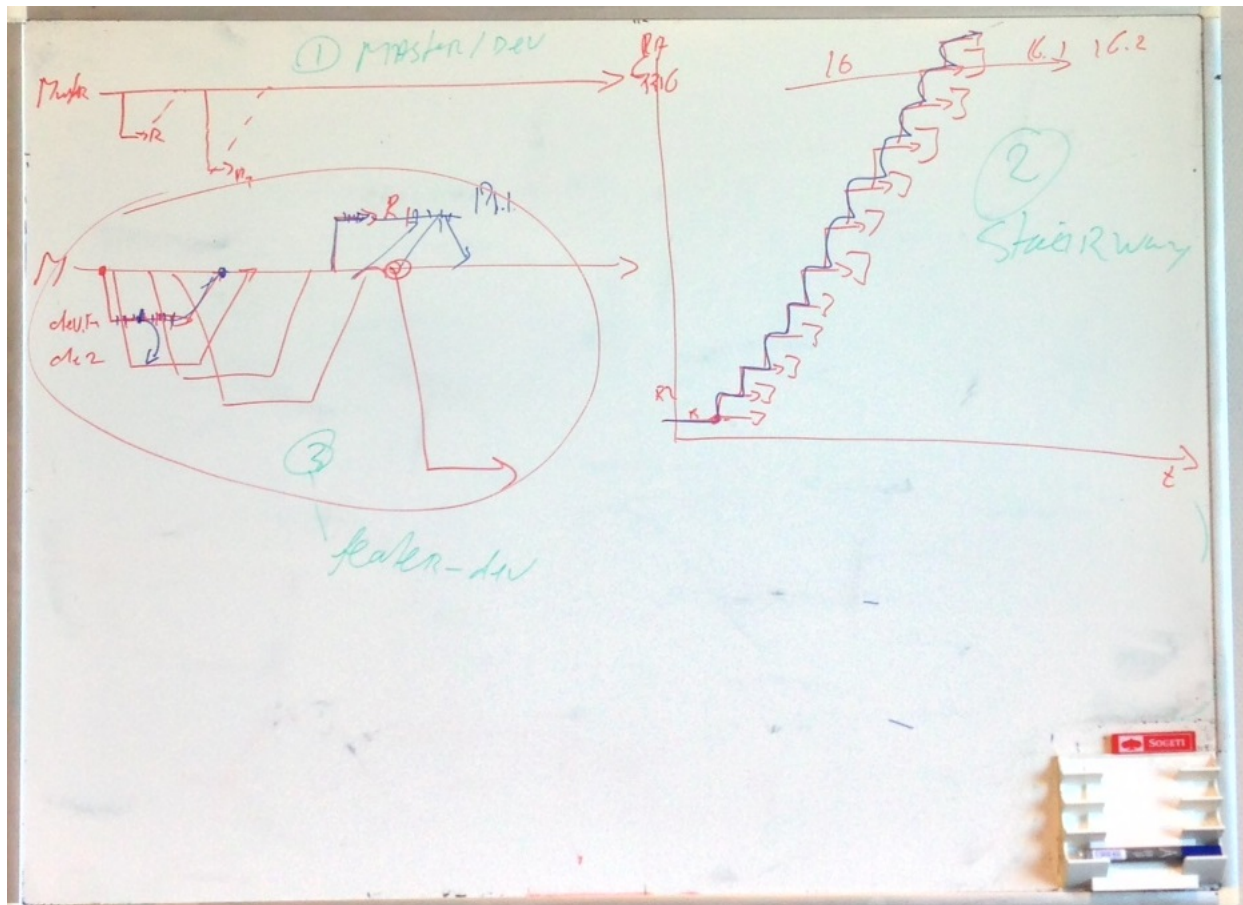 ① Master/Dev
Master
R
R
M
R
dev.1
de2
③
feater-dev
16
16.1 16.2
②
StaiRway
R
t
SOGETI